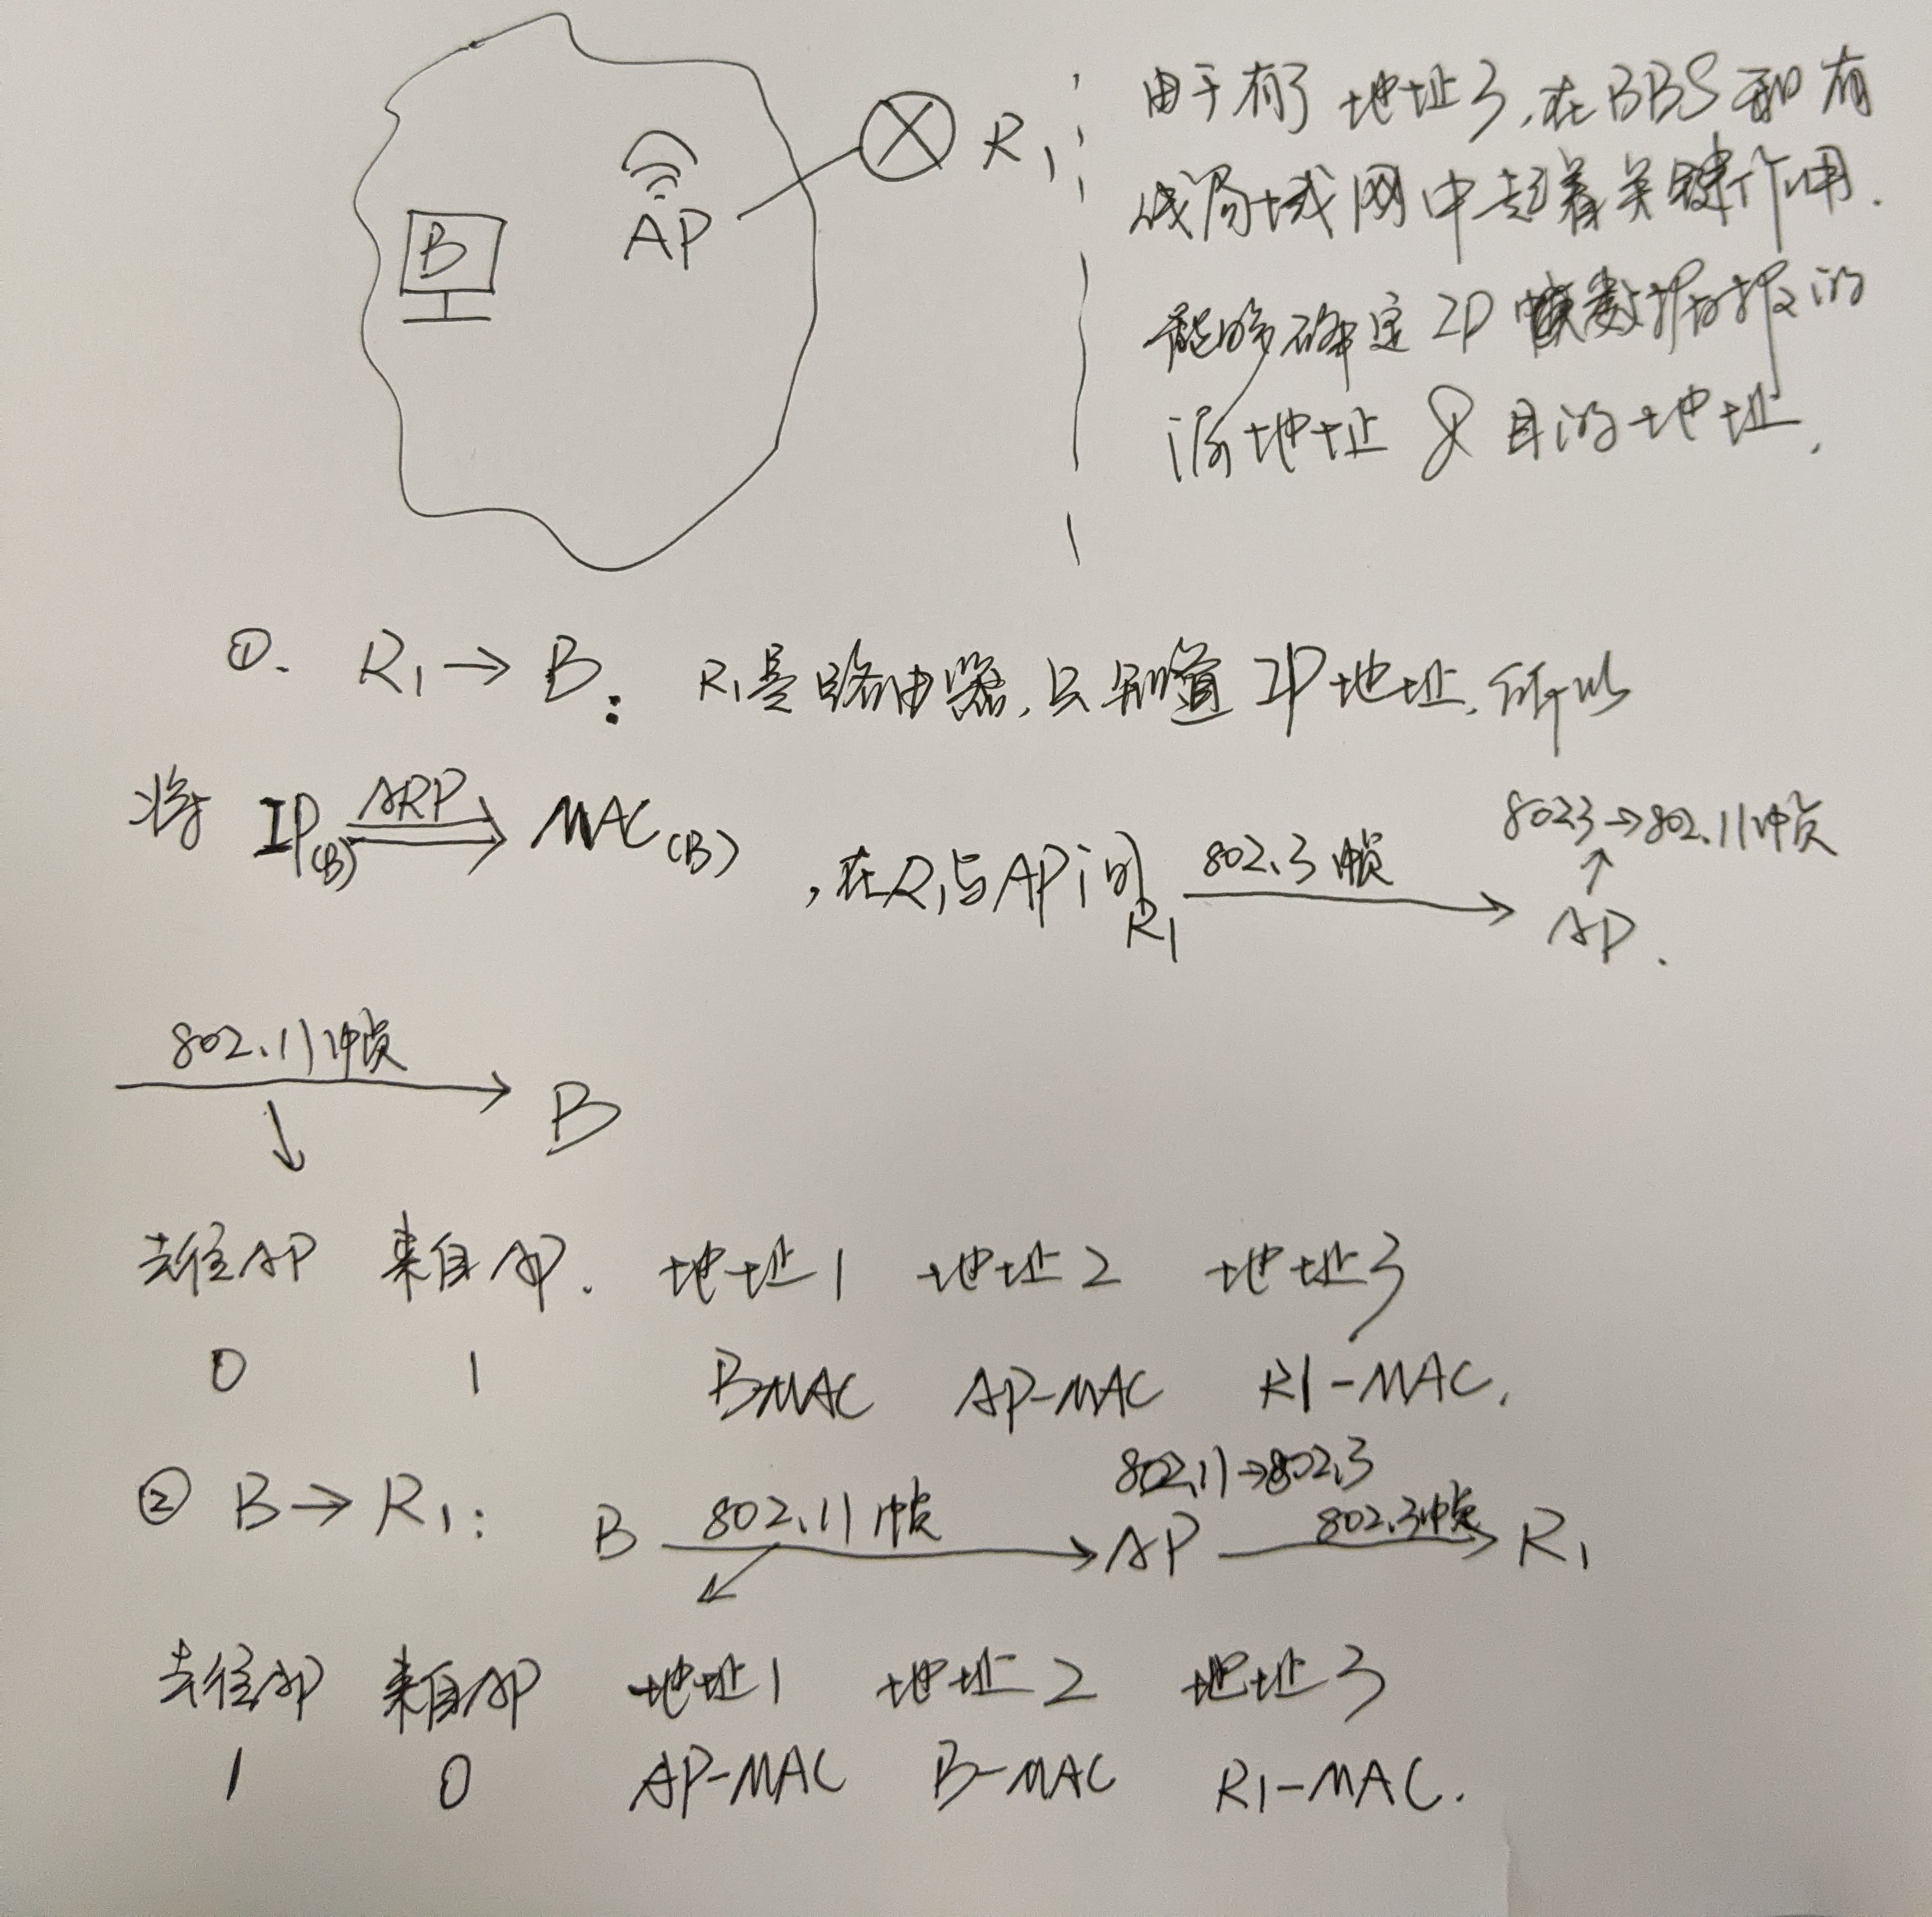 B
AP
R₁
由于有了地址3,在BBS和有
线局域网中起着关键作用.
能够确定IP数据报的
源地址&目的地址.
①. R₁→B: R₁是路由器,只知道IP地址,所以
将 IP(B) ARP⇒ MAC(B) ,在R₁与AP间 R₁ 802.3帧→ AP.
8023→802.11帧
↑
802.11帧→ B
↓
去往AP 来自AP. 地址1 地址2 地址3
0 1 BMAC AP-MAC R1-MAC.
802.11→802.3
② B→R₁: B 802.11帧→ AP 802.3帧→ R₁
去往AP 来自AP 地址1 地址2 地址3
1 0 AP-MAC B-MAC R1-MAC.